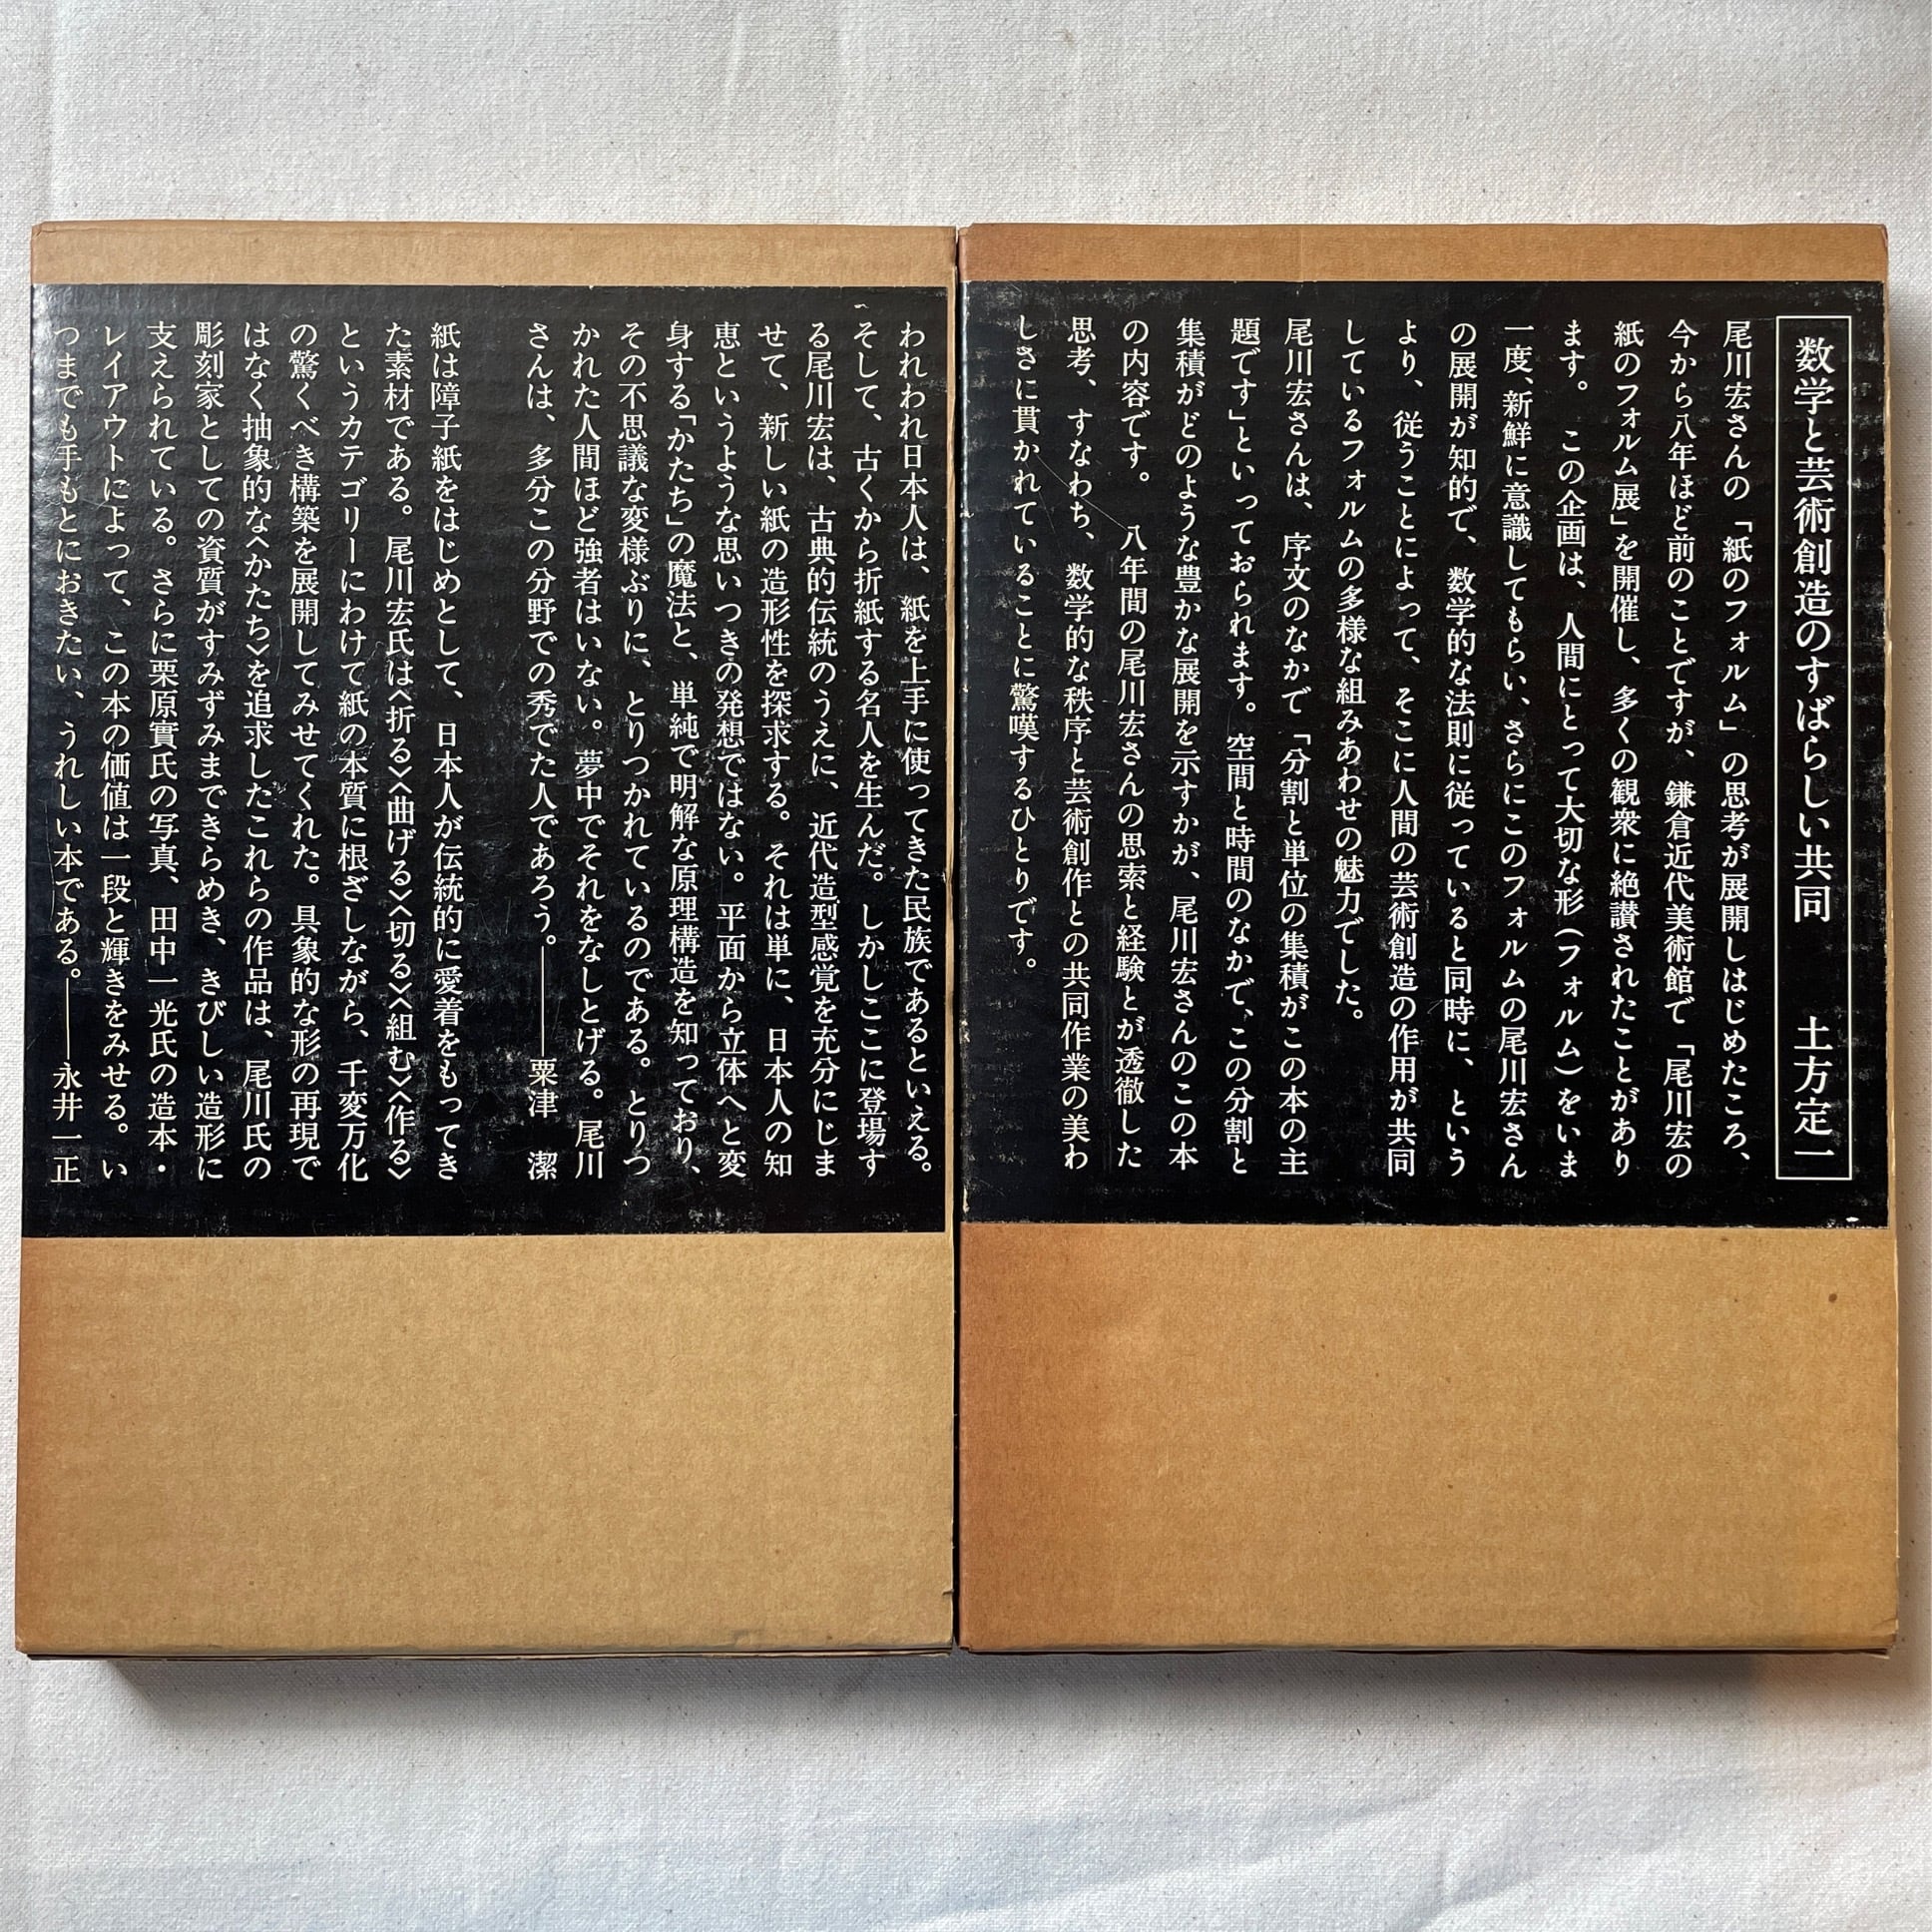 数学と芸術創造のすばらしい共同　土方定一
尾川宏さんの「紙のフォルム」の思考が展開しはじめたころ、
今から八年ほど前のことですが、鎌倉近代美術館で「尾川宏の
紙のフォルム展」を開催し、多くの観衆に絶讃されたことがあり
ます。この企画は、人間にとって大切な形（フォルム）をいま
一度、新鮮に意識してもらい、さらにこのフォルムの尾川宏さん
の展開が知的で、数学的な法則に従っていると同時に、という
より、従うことによって、そこに人間の芸術創造の作用が共同
しているフォルムの多様な組みあわせの魅力でした。
尾川宏さんは、序文のなかで「分割と単位の集積がこの本の主
題です」といっておられます。空間と時間のなかで、この分割と
集積がどのような豊かな展開を示すかが、尾川宏さんのこの本
の内容です。　八年間の尾川宏さんの思索と経験とが透徹した
思考、すなわち、数学的な秩序と芸術創作との共同作業の美わ
しさに貫かれていることに驚嘆するひとりです。
われわれ日本人は、紙を上手に使ってきた民族であるといえる。
そして、古くから折紙する名人を生んだ。しかしここに登場す
る尾川宏は、古典的伝統のうえに、近代造型感覚を充分にじま
せて、新しい紙の造形性を探求する。それは単に、日本人の知
恵というような思いつきの発想ではない。平面から立体へと変
身する「かたち」の魔法と、単純で明解な原理構造を知っており、
その不思議な変様ぶりに、とりつかれているのである。とりつ
かれた人間ほど強者はいない。夢中でそれをなしとげる。尾川
さんは、多分この分野での秀でた人であろう。——粟津　潔
紙は障子紙をはじめとして、日本人が伝統的に愛着をもってき
た素材である。尾川宏氏は〈折る〉〈曲げる〉〈切る〉〈組む〉〈作る〉
というカテゴリーにわけて紙の本質に根ざしながら、千変万化
の驚くべき構築を展開してみせてくれた。具象的な形の再現で
はなく抽象的な〈かたち〉を追求したこれらの作品は、尾川氏の
彫刻家としての資質がすみずみまできらめき、きびしい造形に
支えられている。さらに栗原實氏の写真、田中一光氏の造本・
レイアウトによって、この本の価値は一段と輝きをみせる。い
つまでも手もとにおきたい、うれしい本である。——永井一正